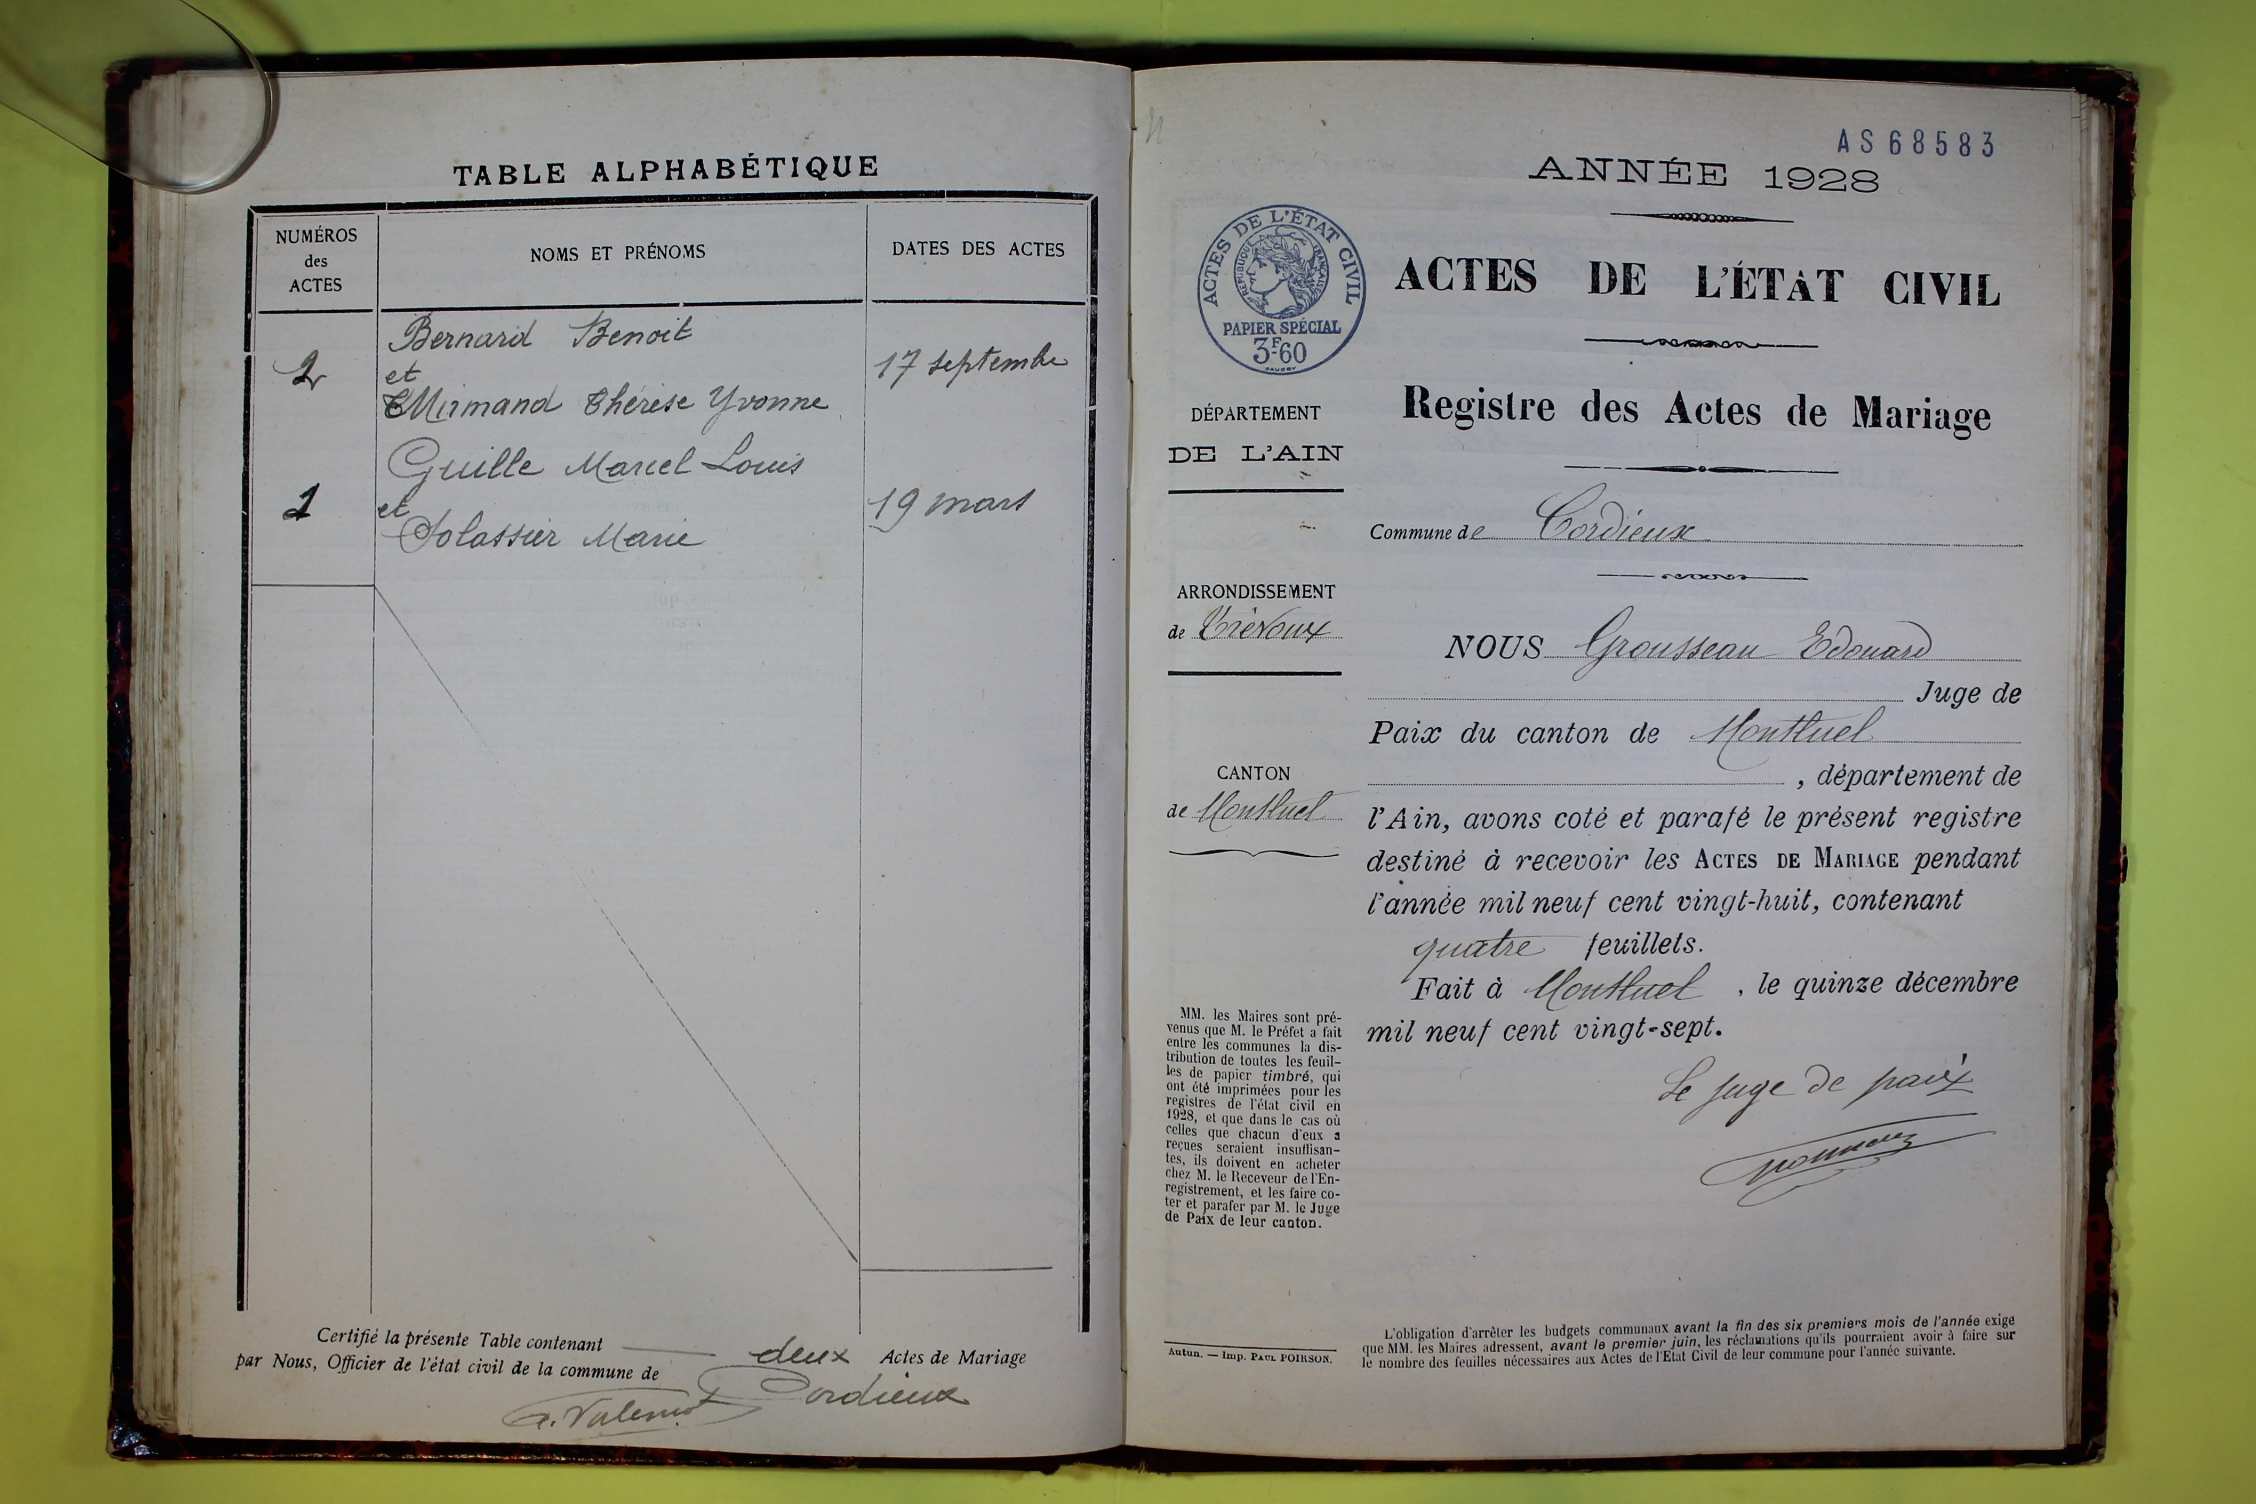 TABLE ALPHABÉTIQUE
NUMÉROS
des
ACTES
NOMS ET PRÉNOMS
DATES DES ACTES
Bernard Benoit
2
et
17 septembre
Mirmand Thérèse Yvonne
Guille Marcel Louis
1
et
19 mars
Solassier Marie
Certifié la présente Table contenant deux Actes de Mariage
par Nous, Officier de l'état civil de la commune de Cordieux
AS 68583
ANNÉE 1928
ACTES DE L'ÉTAT CIVIL
RÉPUBLIQUE FRANÇAISE
PAPIER SPÉCIAL
3F60
ACTES DE L'ÉTAT CIVIL
Registre des Actes de Mariage
DÉPARTEMENT
DE L'AIN
Commune de Cordieux
ARRONDISSEMENT
de Trévoux
NOUS Grousseau Edouard
Juge de
Paix du canton de Montluel
, département de
CANTON
de Montluel
l'Ain, avons coté et parafé le présent registre
destiné à recevoir les ACTES DE MARIAGE pendant
l'année mil neuf cent vingt-huit, contenant
quatre feuillets.
Fait à Montluel, le quinze décembre
mil neuf cent vingt-sept.
Le juge de paix
MM. les Maires sont pré-
venus que M. le Préfet a fait
entre les communes la dis-
tribution de toutes les feuil-
les de papier timbré, qui
ont été imprimées pour les
registres de l'état civil en
1928, et que dans le cas où
celles que chacun d'eux a
reçues seraient insuffisan-
tes, ils doivent en acheter
chez M. le Receveur de l'En-
registrement, et les faire co-
ter et parafer par M. le Juge
de Paix de leur canton.
Autun. — Imp. PAUL POIRSON.
L'obligation d'arrêter les budgets communaux avant la fin des six premiers mois de l'année exige
que MM. les Maires adressent, avant le premier juin, les réclamations qu'ils pourraient avoir à faire sur
le nombre des feuilles nécessaires aux Actes de l'Etat Civil de leur commune pour l'année suivante.